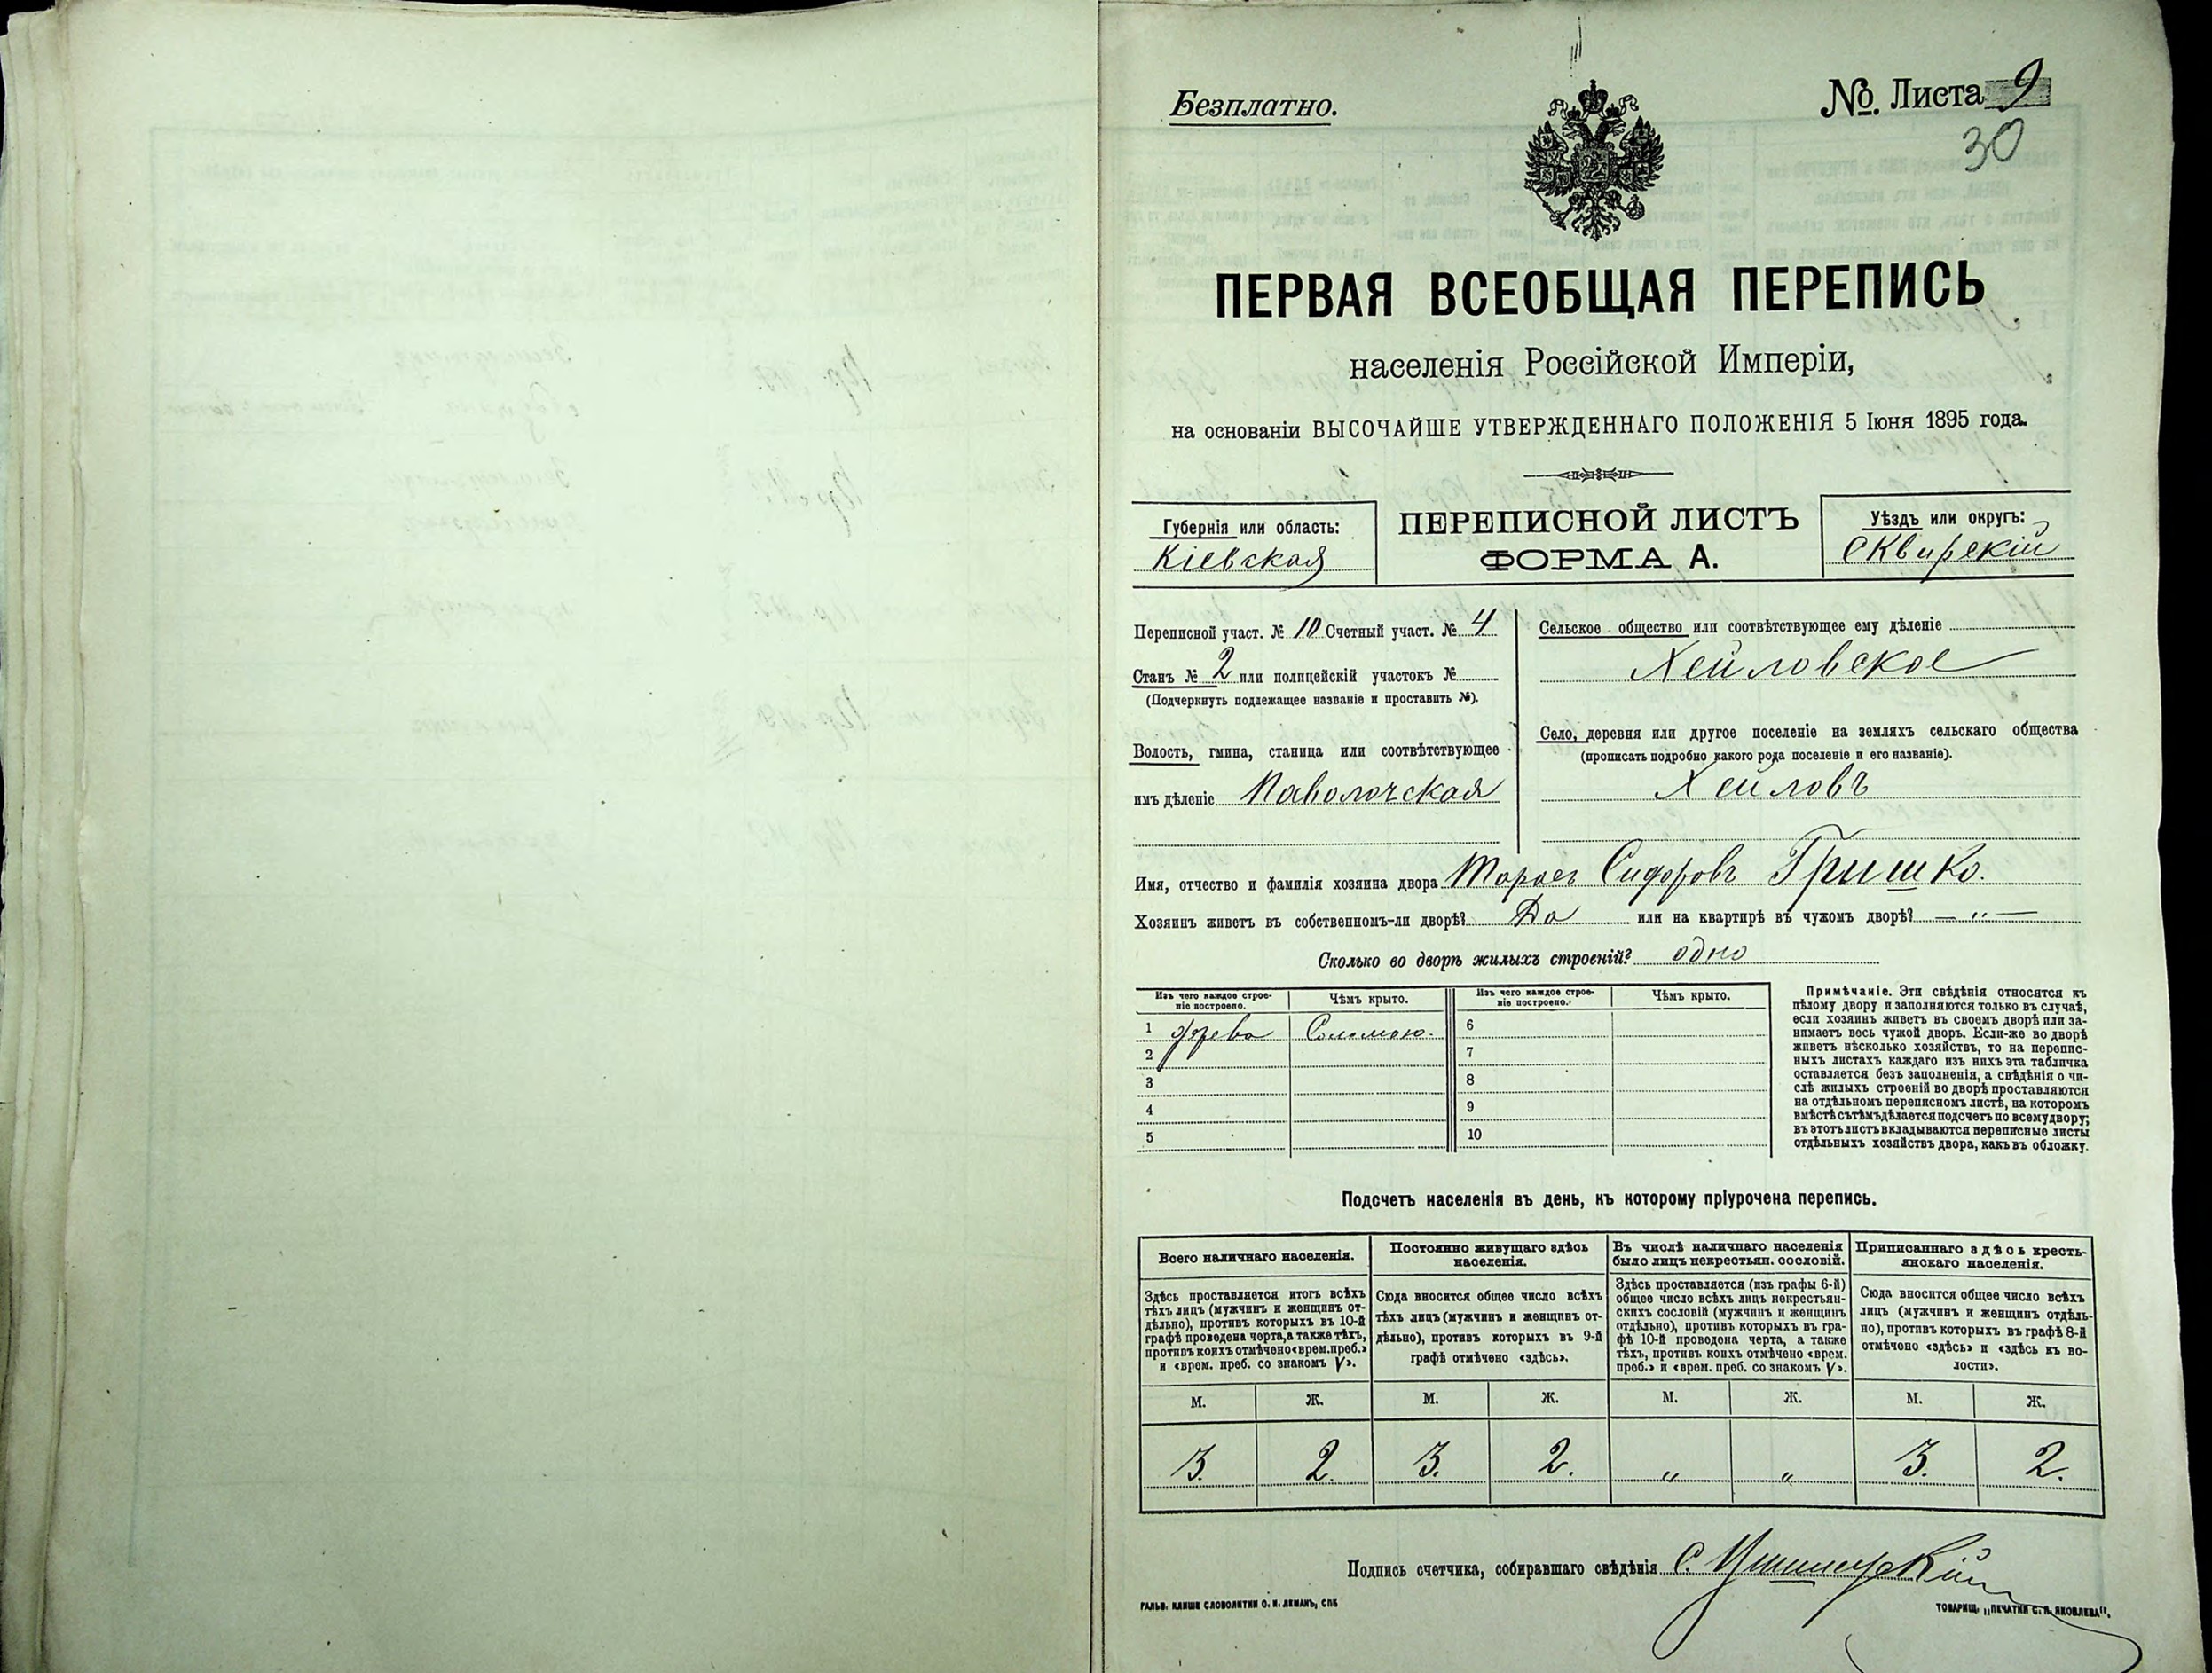 Безплатно.
№. Листа 9
30
ПЕРВАЯ ВСЕОБЩАЯ ПЕРЕПИСЬ
населенія Россійской Имперіи,
на основаніи ВЫСОЧАЙШЕ УТВЕРЖДЕННАГО ПОЛОЖЕНІЯ 5 Іюня 1895 года.
Губернія или область:
Кіевская
ПЕРЕПИСНОЙ ЛИСТЪ
ФОРМА А.
Уѣздъ или округъ:
Сквирскій
Переписной участ. № 10 Счетный участ. № 4
Станъ № 2 или полицейскій участокъ №
(Подчеркнуть подлежащее названіе и проставить №).
Волость, гмина, станица или соотвѣтствующее
имъ дѣленіе Паволочская
Сельское общество или соотвѣтствующее ему дѣленіе
Хейловское
Село, деревня или другое поселеніе на земляхъ сельскаго общества
(прописать подробно какого рода поселеніе и его названіе).
Хейловъ
Имя, отчество и фамилія хозяина двора Тарасъ Сидоровъ Гришко.
Хозяинъ живетъ въ собственномъ-ли дворѣ? Да или на квартирѣ въ чужомъ дворѣ? — „ —
Сколько во дворѣ жилыхъ строеній? одно
Изъ чего каждое строе-
ніе построено.
Чѣмъ крыто.
Изъ чего каждое строе-
ніе построено.
Чѣмъ крыто.
1 дерева Соломою. 6
2 7
3 8
4 9
5 10
Примѣчаніе. Эти свѣдѣнія относятся къ
цѣлому двору и заполняются только въ случаѣ,
если хозяинъ живетъ въ своемъ дворѣ или за-
нимаетъ весь чужой дворъ. Если-же во дворѣ
живетъ нѣсколько хозяйствъ, то на перепис-
ныхъ листахъ каждаго изъ нихъ эта табличка
оставляется безъ заполненія, а свѣдѣнія о чи-
слѣ жилыхъ строеній во дворѣ проставляются
на отдѣльномъ переписномъ листѣ, на которомъ
вмѣстѣ съ тѣмъ дѣлается подсчетъ по всему двору;
въ этотъ листъ вкладываются переписные листы
отдѣльныхъ хозяйствъ двора, какъ въ обложку.
Подсчетъ населенія въ день, къ которому пріурочена перепись.
Всего наличнаго населенія.
Здѣсь проставляется итогъ всѣхъ
тѣхъ лицъ (мужчинъ и женщинъ от-
дѣльно), противъ которыхъ въ 10-й
графѣ проведена черта, а также тѣхъ,
противъ коихъ отмѣчено «врем. преб.»
и «врем. преб. со знакомъ V».
Постоянно живущаго здѣсь
населенія.
Сюда вносится общее число всѣхъ
тѣхъ лицъ (мужчинъ и женщинъ от-
дѣльно), противъ которыхъ въ 9-й
графѣ отмѣчено «здѣсь».
Въ числѣ наличнаго населенія
было лицъ некрестьян. сословій.
Здѣсь проставляется (изъ графы 6-й)
общее число всѣхъ лицъ некрестьян-
скихъ сословій (мужчинъ и женщинъ
отдѣльно), противъ которыхъ въ гра-
фѣ 10-й проведена черта, а также
тѣхъ, противъ коихъ отмѣчено «врем.
преб.» и «врем. преб. со знакомъ V».
Приписаннаго здѣсь кресть-
янскаго населенія.
Сюда вносится общее число всѣхъ
лицъ (мужчинъ и женщинъ отдѣль-
но), противъ которыхъ въ графѣ 8-й
отмѣчено «здѣсь» и «здѣсь къ во-
лости».
М. Ж. М. Ж. М. Ж. М. Ж.
3. 2. 3. 2. „ „ 3. 2.
Подпись счетчика, собиравшаго свѣдѣнія С.
ГАЛЬВ. КЛИШЕ СЛОВОЛИТНИ О. И. ЛЕМАНЪ, СПБ
ТОВАРИЩ. „ПЕЧАТНЯ С. П. ЯКОВЛЕВА".